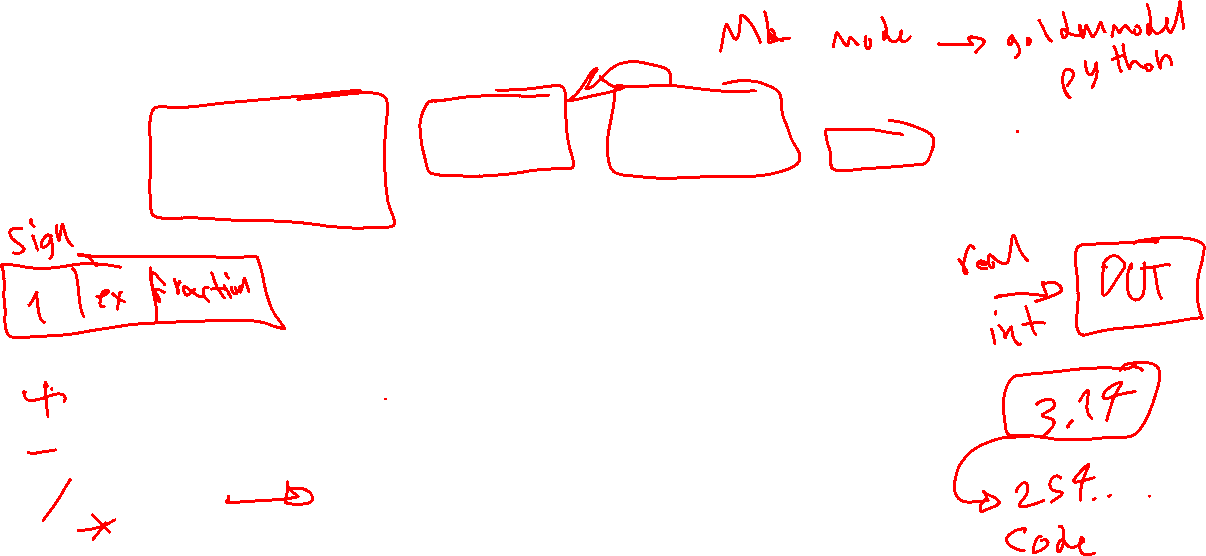 node → goldenmodel
python
Sign
1 ex fraction
real
→ DUT
int
+
3.14
-
/ → 254....
*
Code